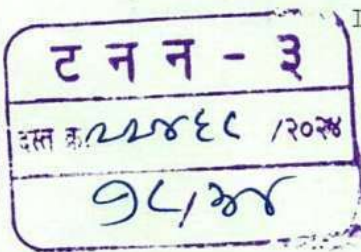 ट न न - ३
दस्त क्र. २२४६८ /२०२४
१८/३४